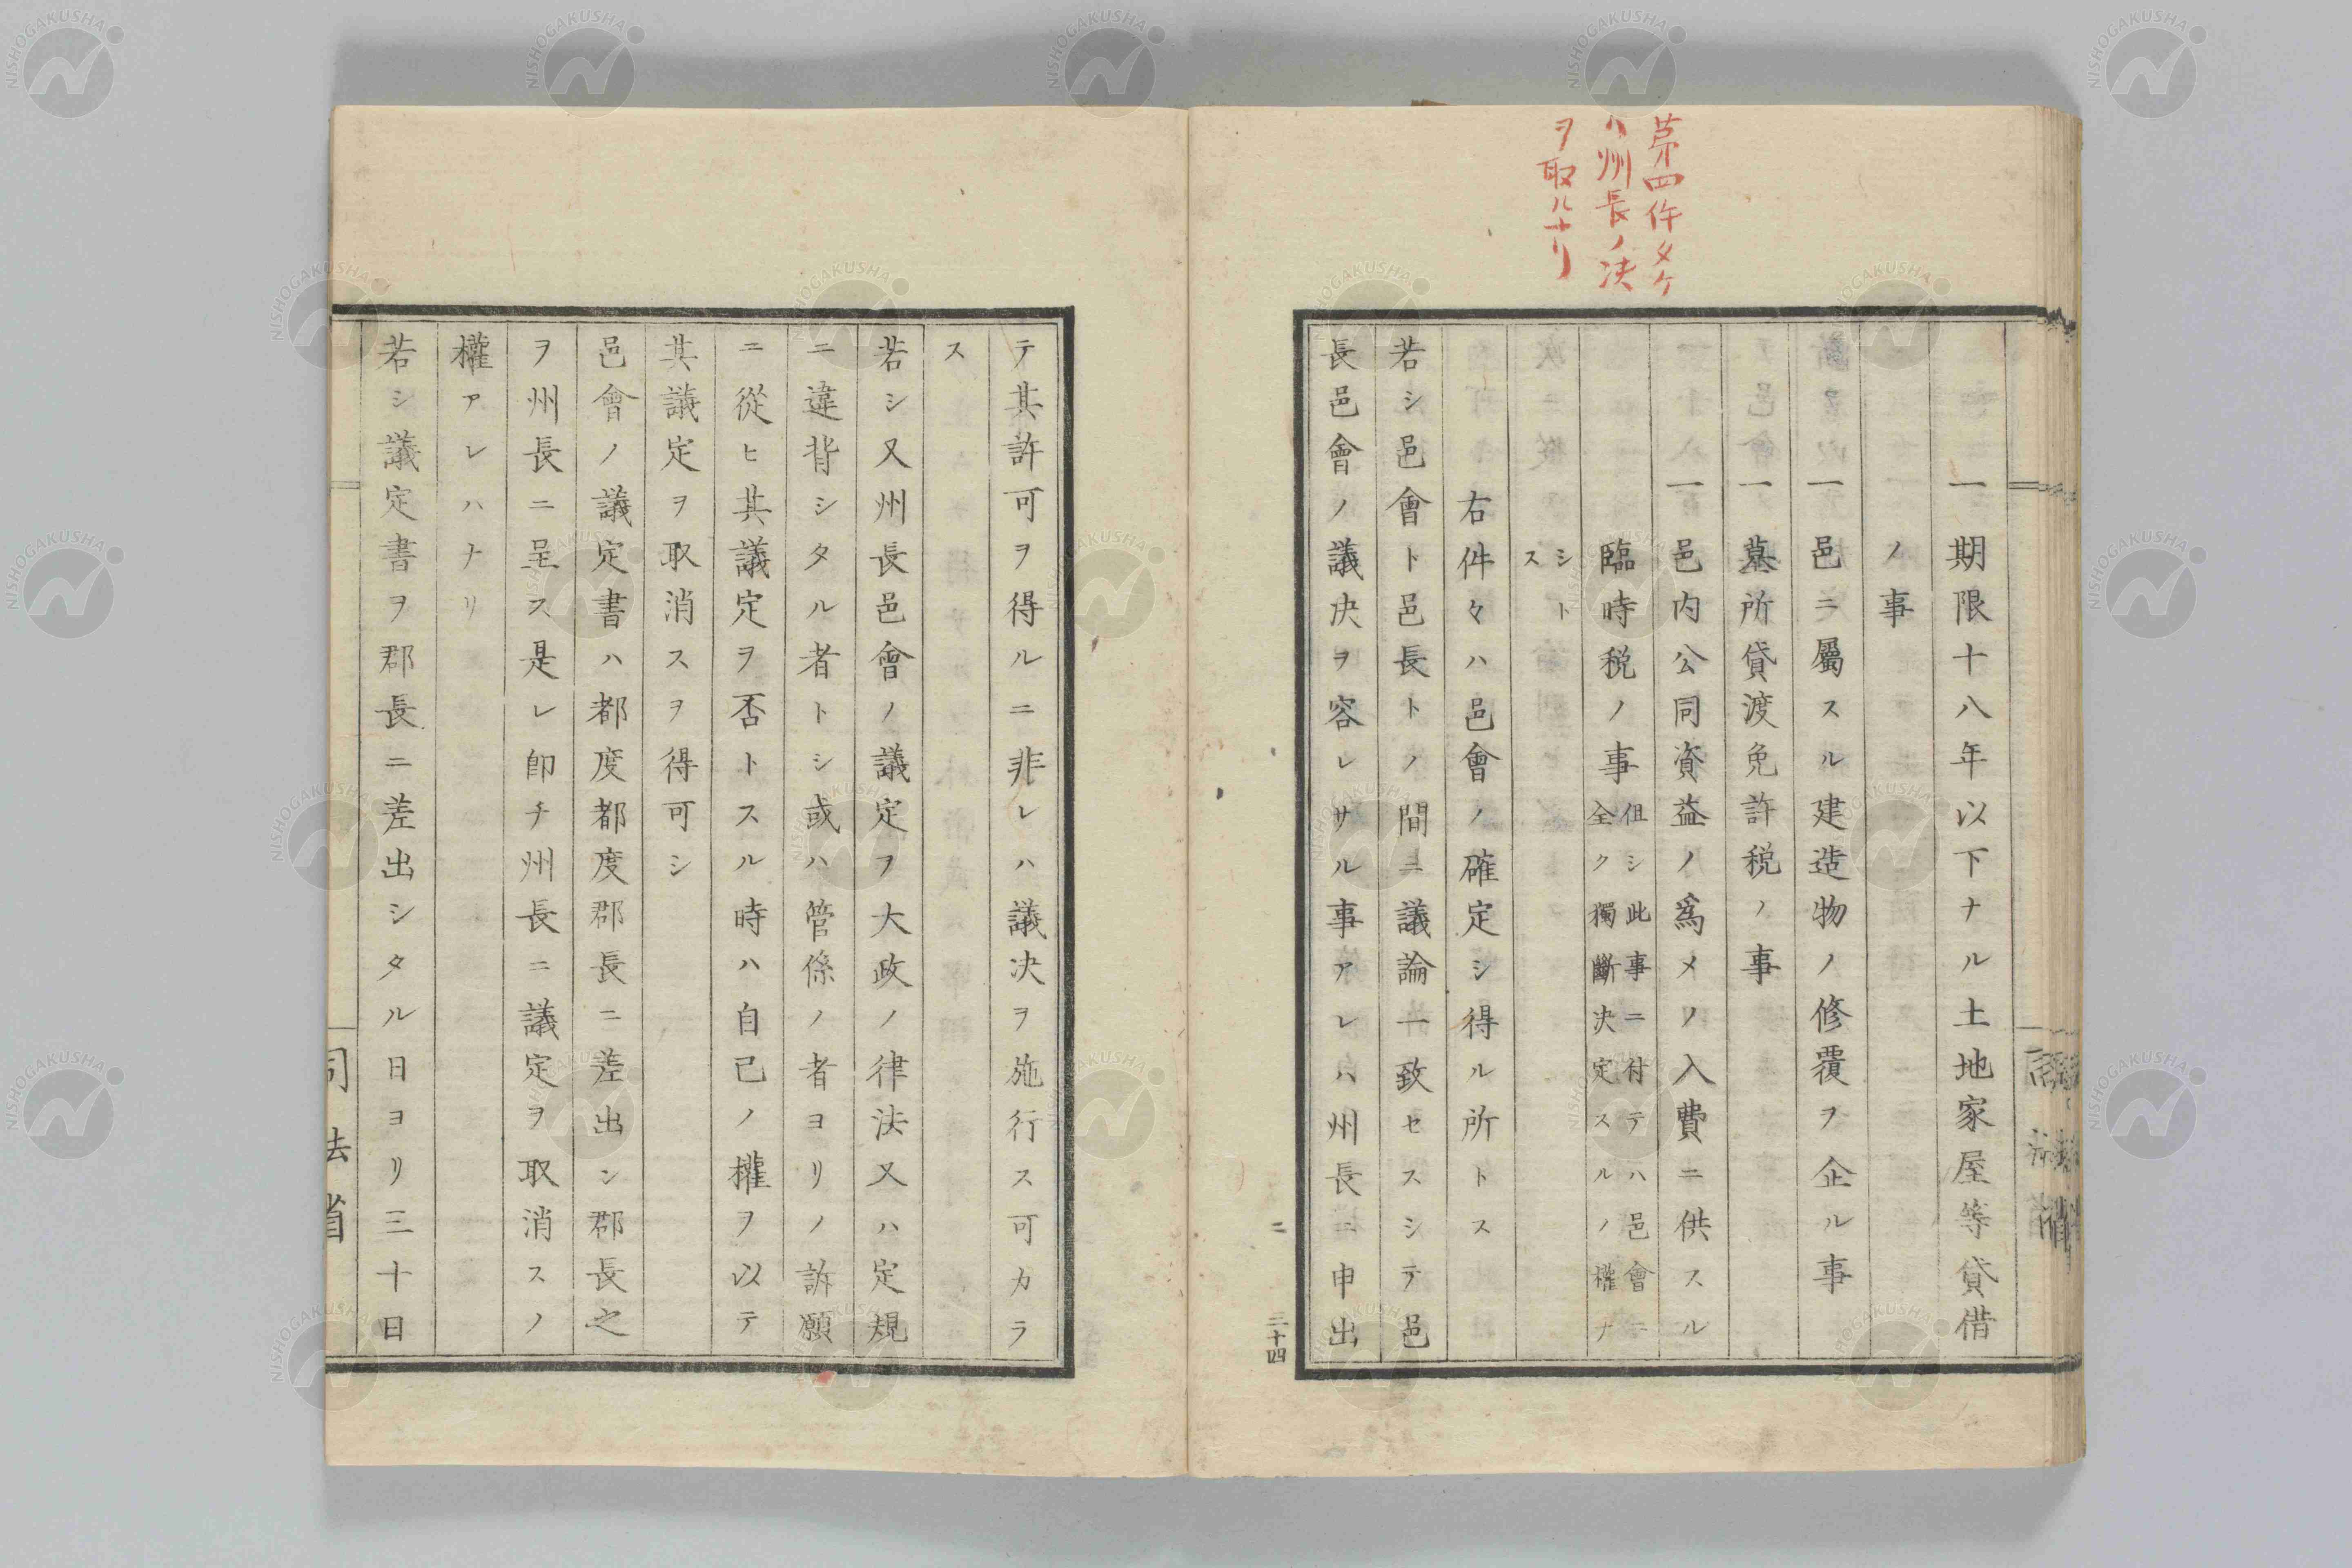 一期限十八年以下ナル土地家屋等貸借
ノ事
一邑ニ屬スル建造物ノ修覆ヲ企ル事
一墓所貸渡免許税ノ事
一邑内公同資益ノ爲メノ入費ニ供スル
臨時税ノ事
但シ此事ニ付テハ邑會ニ
全ク獨斷决定スルノ權ナ
シト
ス
右件々ハ邑會ノ確定シ得ル所トス
若シ邑會ト邑長トノ間ニ議論一致セスシテ邑
長邑會ノ議决ヲ容レサル事アレハ州長ニ申出
第四件タケ
ハ州長ノ决
ヲ取ルナリ
二
三十四
テ其許可ヲ得ルニ非レハ議决ヲ施行ス可カラ
ス
若シ又州長邑會ノ議定ヲ大政ノ律法又ハ定規
ニ違背シタル者トシ或ハ管係ノ者ヨリノ訴願
ニ從ヒ其議定ヲ否トスル時ハ自己ノ權ヲ以テ
其議定ヲ取消スヲ得可シ
邑會ノ議定書ハ都度都度郡長ニ差出シ郡長之
ヲ州長ニ呈ス是レ即チ州長ニ議定ヲ取消スノ
權アレハナリ
若シ議定書ヲ郡長ニ差出シタル日ヨリ三十日
司法省
NISHOGAKUSHA